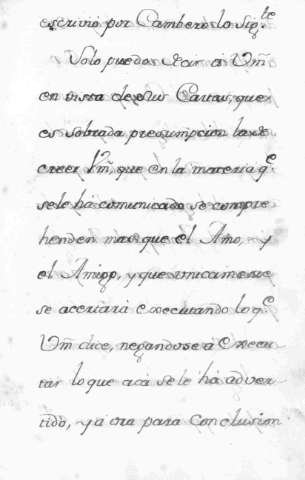 escrivió por Cambero lo sig.te
Solo puedo decir à Vm.
en vista de sus Cartas, que
es sobrada presumpcion la de
creer Vm. que en la materia q.e
sele ha comunicado se compre
henden mas que el Amo, y
el Amigo, y que unicamente
se acertará executando lo q.e
Vm dice, negandose à Execu
tar lo que acá sele ha adver
tido, y à ora para Conclusion